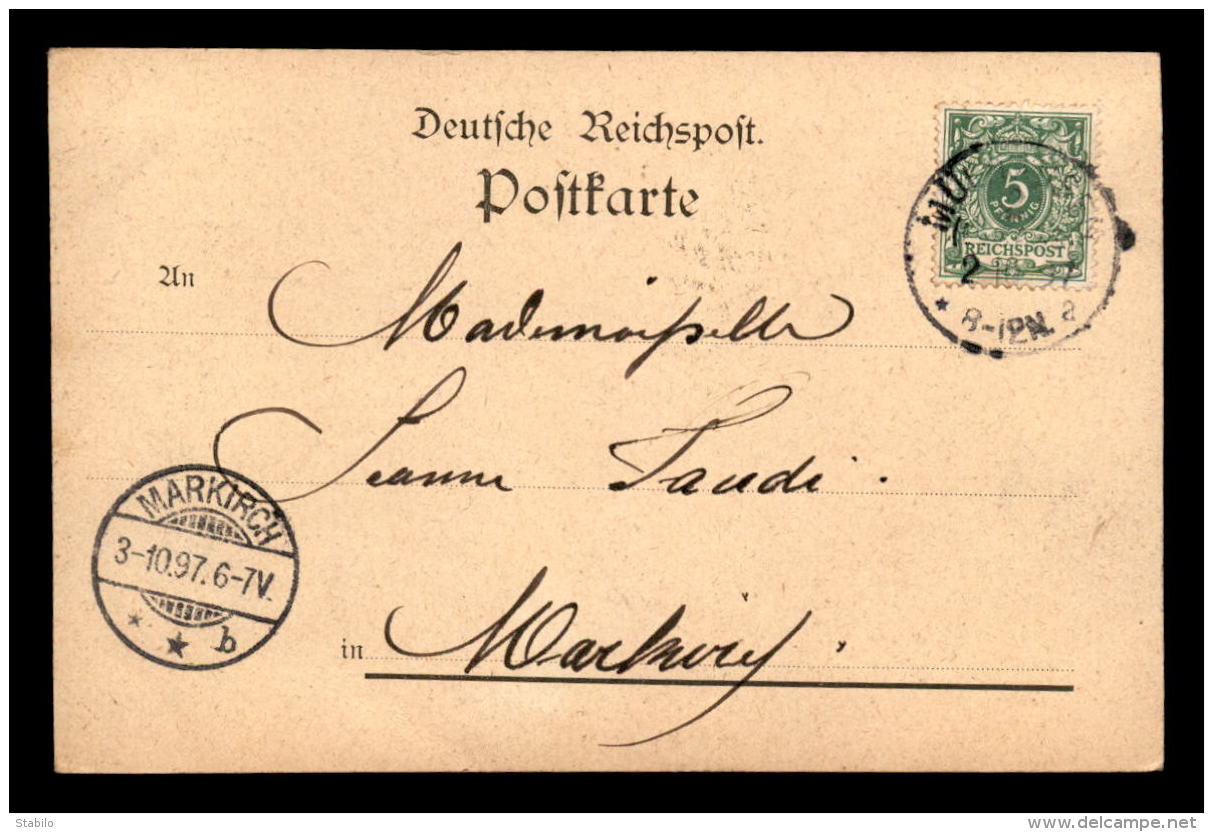 Deutsche Reichspost.
Postkarte
5
PFENNIG
REICHSPOST
8-12N. a
An Mademoiselle
Jeanne Gaudi.
MARKIRCH
3-10.97. 6-7V.
b
in Markirch.
Stabilo
www.delcampe.net